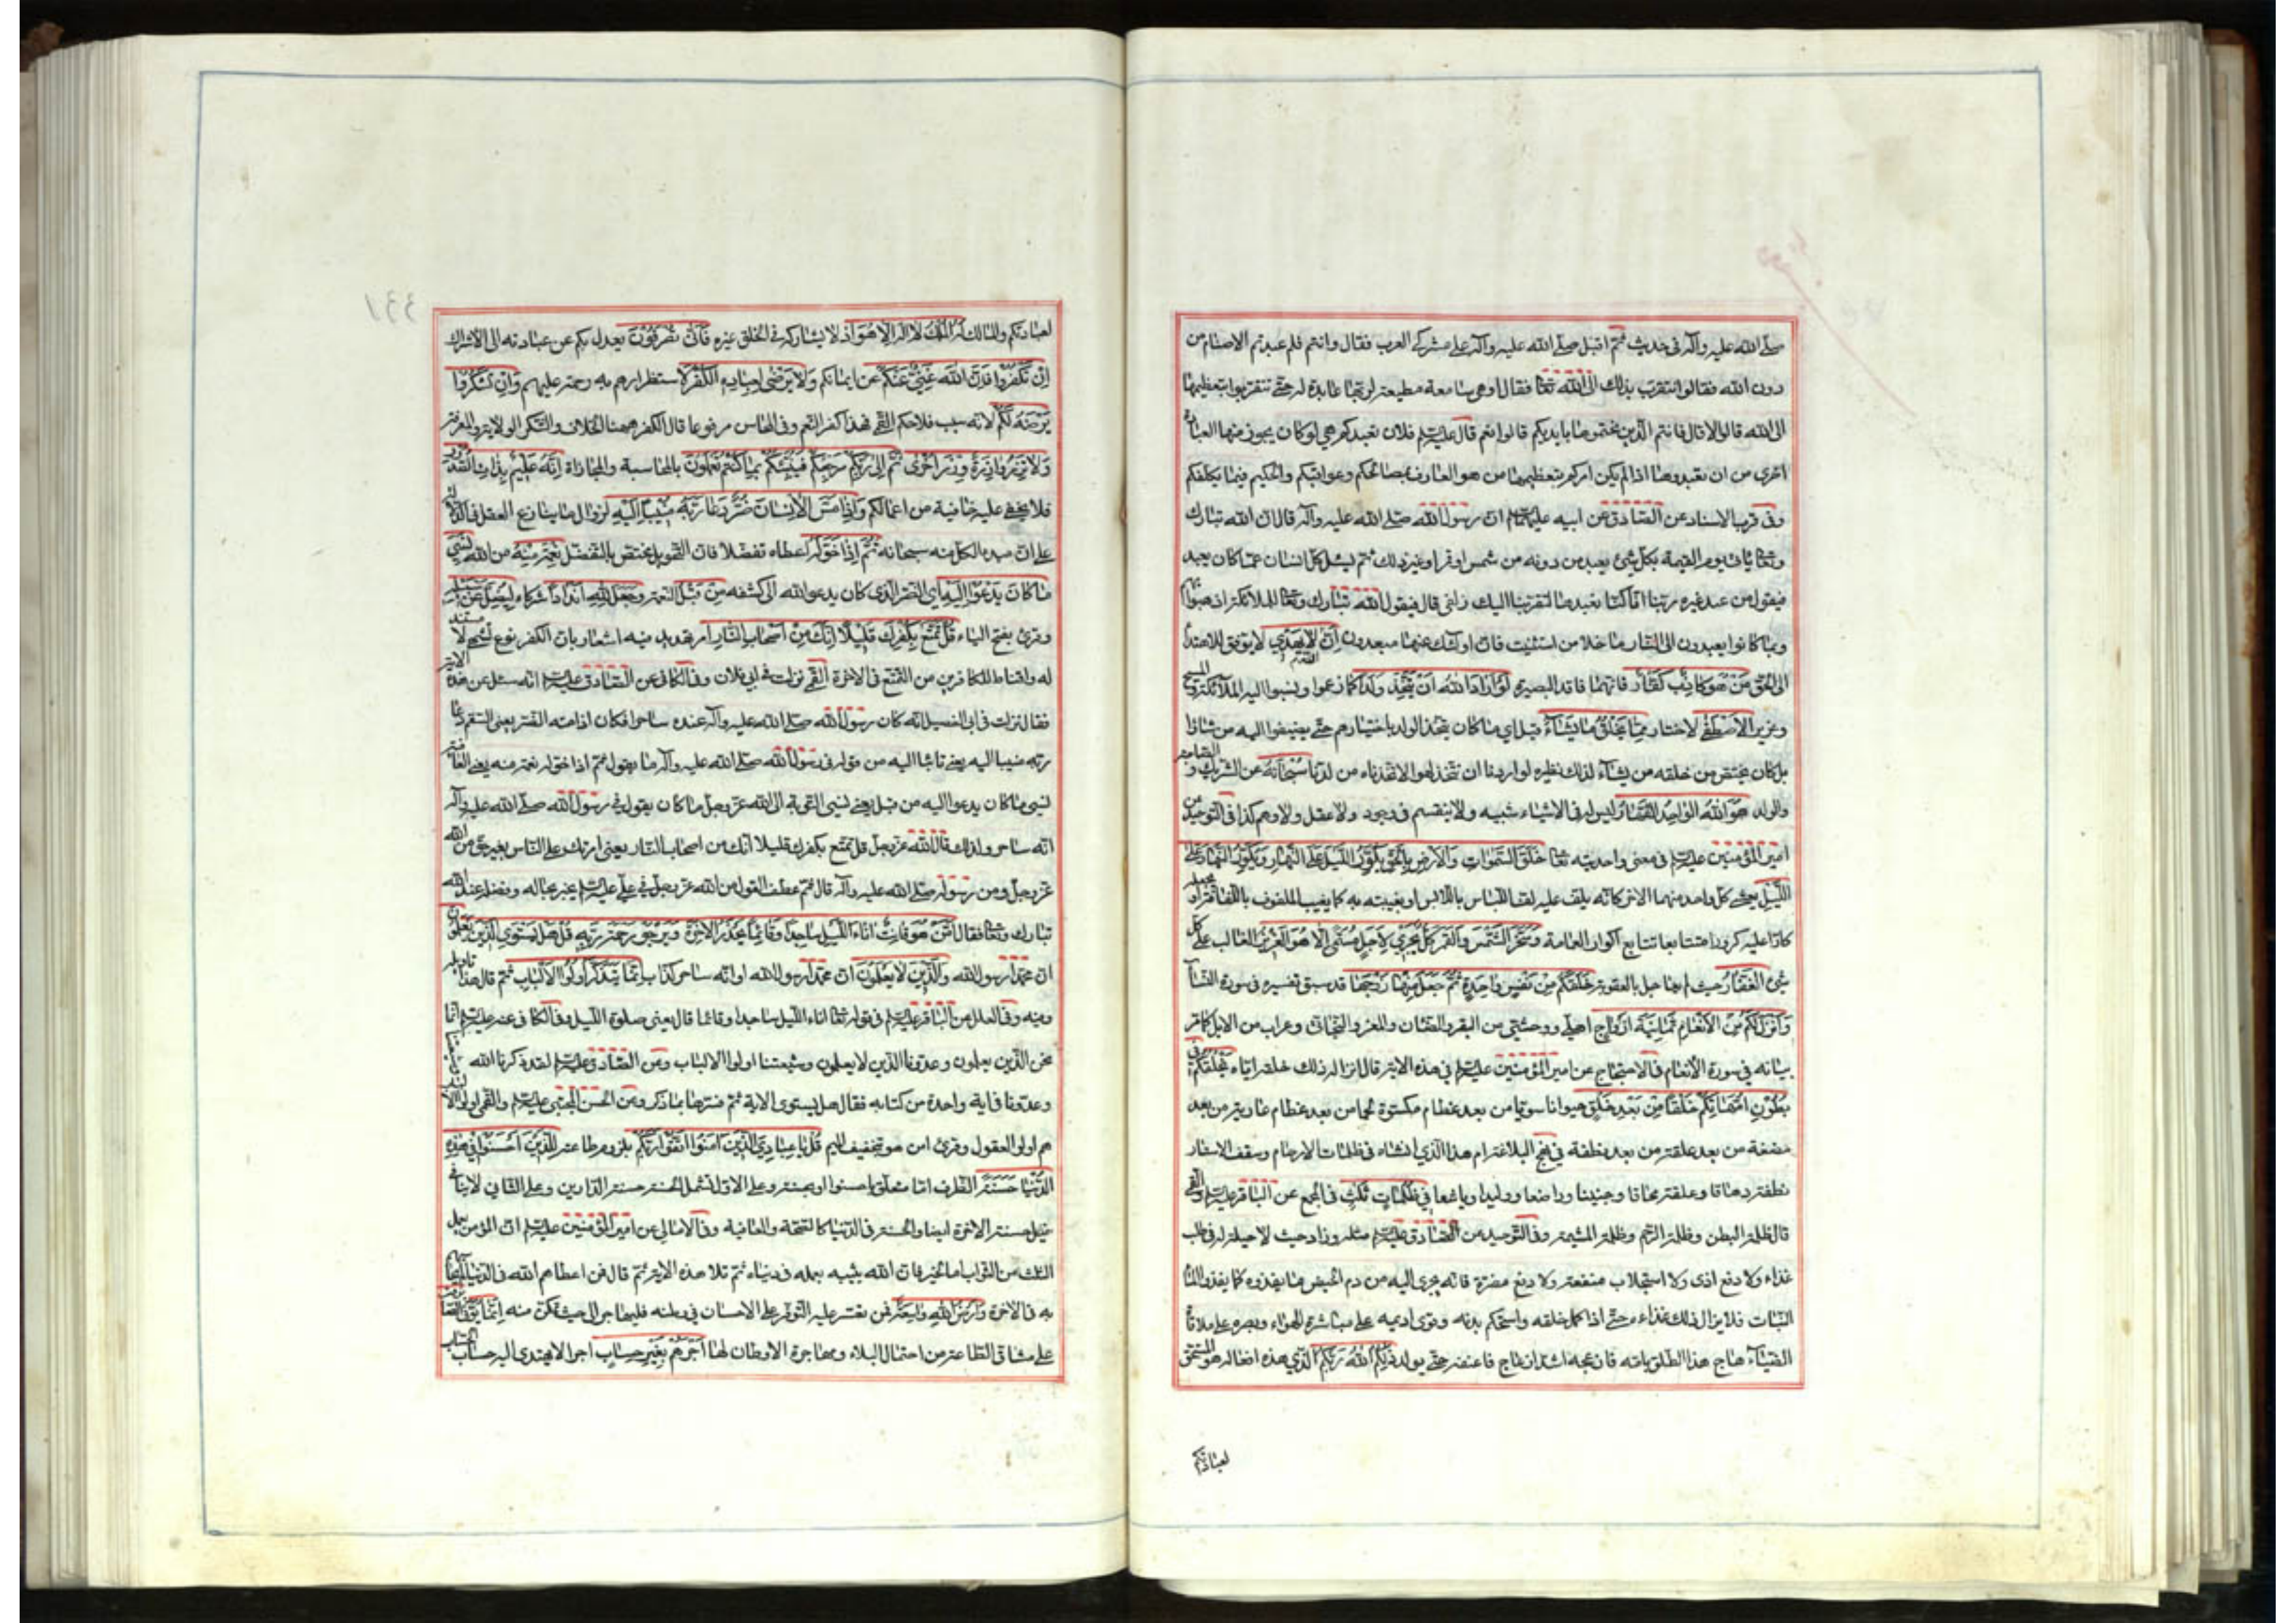 صلّى الله عليه وآله في حديث ثمّ اقبل صلّى الله عليه وآله على مشركي العرب فقال وانتم فلم عبدتم الاصنام من
دون الله فقالوا نتقرب بذلك الى الله تعالى فقال او هي سامعة مطيعة لربها عابدة له حتى تتقربوا بتعظيمها
الى الله قالوا لا قال فانتم الّذين نحتموها بايديكم قالوا نعم قال عليه السلم فلان تعبدكم هي لو كان يجوز منها العبادة
احرى من ان تعبدوها اذا لم يكن امركم بتعظيمها من هو العارف بمصالحكم وعواقبكم والحكيم فيما يكلفكم
وفي قرب الاسناد عن الصّادق عن ابيه عليهما السلم انّ رسول الله صلّى الله عليه وآله قال انّ الله تبارك
وتعالى يأتي يوم القيمة بكلّ شيئ يعبد من دونه من شمس او قمر او غير ذلك ثمّ يسئل كلّ انسان عمّا كان يعبد
فيقول من عبد غيره ربّنا انّا كنّا نعبدها لتقرّبنا اليك زلفى قال فيقول الله تبارك وتعالى للملائكة اذهبوا بهم
وبما كانوا يعبدون الى النّار ما خلا من استثنيت فانّ اولئك عنها مبعدون انّ الله لا يهدي لا يوفق للاهتداء
الى الحقّ مَنْ هُوَ كاذِبٌ كَفّارٌ فانّهما فاقدا البصيرة لَوْ اَرادَ اللهُ اَنْ يَتَّخِذَ وَلَداً كما زعموا ونسبوا اليه الملائكة والمسيح
وعزير لاصْطَفى لاختار مِمّا يَخْلُقُ ما يَشاءُ قيل اي ما كان يتّخذ الولد باختيارهم حتّى يضيفوا اليه من شاؤا
بل كان يختصّ من خلقه من يشاء لذلك نظيره لو اردنا ان نتّخذ لهوا لاتّخذناه من لدنّا سُبْحانَهُ عن الشّريك والصّاحبة
والولد هُوَ اللهُ الواحِدُ القَهّارُ ليس له في الاشياء شبيه ولا ينقسم في وجود ولا عقل ولا وهم كذا في التّوحيد عن
امير المؤمنين عليه السلم في معنى واحديته تعالى خَلَقَ السَّمواتِ وَالاَرْضَ بِالْحَقِّ يُكَوِّرُ اللَّيْلَ عَلَى النَّهارِ وَيُكَوِّرُ النَّهارَ عَلَى
اللَّيْلِ يغشى كلّ واحد منهما الاخر كانّه يلف عليه لفّ اللّباس باللّابس او يغيبه به كما يغيب الملفوف باللّفافة او يجعله
كارّا عليه كرورا متتابعا تتابع اكوار العمامة وَسَخَّرَ الشَّمْسَ وَالْقَمَرَ كُلٌّ يَجْري لاَجَلٍ مُسَمًّى اَلا هُوَ العَزيزُ الغالب على كلّ
شيئ الغَفّارُ حيث لم يعاجل بالعقوبة خَلَقَكُمْ مِنْ نَفْسٍ واحِدَةٍ ثُمَّ جَعَلَ مِنْها زَوْجَها قد سبق تفسيره في سورة النّساء
وَاَنْزَلَ لَكُمْ مِنَ الاَنْعامِ ثَمانِيَةَ اَزْواجٍ اهليّ ووحشيّ من البقر والضّأن والمعز والبخاتي وعراب من الابل كما مرّ
بيانه في سورة الأنعام في الاحتجاج عن امير المؤمنين عليه السلم في هذه الاية قال انزاله ذلك خلقه ايّاه يَخْلُقُكُمْ في
بُطُونِ اُمَّهاتِكُمْ خَلْقاً مِنْ بَعْدِ خَلْقٍ حيوانا سويّا من بعد عظام مكسوّة لحما من بعد عظام عارية من بعد
مضغة من بعد علقة من بعد نطفة في نهج البلاغة ام هذا الّذي انشاه في ظلمات الارحام وشغف الاستار
نطفة دهاقا وعلقة محاقا وجنينا وراضعا ووليدا ويافعا في ظُلُماتٍ ثَلاثٍ في المجمع عن الباقر عليه السلم والقمي
قال ظلمة البطن وظلمة الرّحم وظلمة المشيمة وفي التّوحيد عن الصّادق عليه السلم مثله وزاد حيث لا حيلة له في طلب
غذاء ولا دفع اذى ولا استجلاب منفعة ولا دفع مضرّة فانّه يجري اليه من دم الحيض ما يغذوه كما يغذو الماء
النّبات فلا يزال ذلك غذاءه حتّى اذا كمل خلقه واستحكم بدنه وقوى اديمه على مباشرة الهواء وبصره على ملاقاة
الضّياء هاج هذا الطّلق بامّه فازعجه اشدّ ازعاج فاعنفه حتّى يولد ذلِكُمُ اللهُ رَبُّكُمْ الّذي هذه افعاله هو المستحقّ
لعبادتكم
لعبادتكم والمالك لَهُ المُلْكُ لا اِلهَ اِلاّ هُوَ اذ لا يشاركه في الخلق غيره فَاَنّى تُصْرَفُونَ يعدل بكم عن عبادته الى الاشراك
اِنْ تَكْفُرُوا فَاِنَّ اللهَ غَنِيٌّ عَنْكُمْ عن ايمانكم وَلا يَرْضى لِعِبادِهِ الكُفْرَ لاستضرارهم به رحمة عليهم وَاِنْ تَشْكُرُوا
يَرْضَهُ لَكُمْ لانّه سبب فلاحكم القمي فهذا كفر النّعم وفي المحاسن مرفوعا قال الكفر ههنا الخلاف والشّكر الولاية والمعرفة
وَلا تَزِرُ وازِرَةٌ وِزْرَ اُخْرى ثُمَّ اِلى رَبِّكُمْ مَرْجِعُكُمْ فَيُنَبِّئُكُمْ بِما كُنْتُمْ تَعْمَلُونَ بالمحاسبة والمجازاة اِنَّهُ عَليمٌ بِذاتِ الصُّدُورِ
فلا يخفى عليه خافية من اعمالكم وَاِذا مَسَّ الاِنْسانَ ضُرٌّ دَعا رَبَّهُ مُنيباً اِلَيْهِ لزوال ما ينازع العقل في الدّلالة
على انّ مبدء الكلّ منه سبحانه ثُمَّ اِذا خَوَّلَهُ اعطاه تفضّلا فانّ التّخويل مختصّ بالتّفضّل نِعْمَةً مِنْهُ من الله نَسِيَ
ما كانَ يَدْعُوا اِلَيْهِ اي الضّرّ الّذي كان يدعو الله الى كشفه مِنْ قَبْلُ النّعمة وَجَعَلَ للهِ اَنْداداً شركاء لِيُضِلَّ عَنْ سَبيلِهِ
وقرئ بفتح الياء قُلْ تَمَتَّعْ بِكُفْرِكَ قَليلاً اِنَّكَ مِنْ اَصْحابِ النّارِ امر تهديد فيه اشعار بانّ الكفر نوع تشهّ لا مستند
له واقناط للكافرين من التّمتّع في الاخرة القمي نزلت في ابي فلان وفي الكافي عن الصّادق عليه السلم انّه سئل عن هذه الاية
فقال نزلت في ابي الفصيل انّه كان رسول الله صلّى الله عليه وآله عنده ساحرا فكان اذا مسّه الضرّ يعني السّقم دعا
ربّه منيبا اليه يعني تائبا اليه من قوله في رسول الله صلّى الله عليه وآله ما يقول ثمّ اذا خوّله نعمة منه يعني العافية
نسي ما كان يدعوا اليه من قبل يعني نسي التّوبة الى الله عزّ وجلّ ممّا كان يقول في رسول الله صلّى الله عليه وآله
انّه ساحر ولذلك قال الله عزّ وجلّ قل تمتّع بكفرك قليلا انّك من اصحاب النّار يعني امرتك على النّاس بغير حقّ من الله
عزّ وجلّ ومن رسوله صلّى الله عليه وآله قال ثمّ عطف القول من الله عزّ وجلّ في عليّ عليه السلم يخبر بحاله وفضله عند الله
تبارك وتعالى فقال اَمَّنْ هُوَ قانِتٌ آناءَ اللَّيْلِ ساجِداً وَقائِماً يَحْذَرُ الاخِرَةَ وَيَرْجُو رَحْمَةَ رَبِّهِ قُلْ هَلْ يَسْتَوِي الَّذينَ يَعْلَمُونَ
انّ محمّدا رسول الله وَالَّذينَ لا يَعْلَمُونَ انّ محمّدا رسول الله او انّه ساحر كذّاب اِنَّما يَتَذَكَّرُ اُولُوا الاَلْبابِ ثمّ قال هذا تاويله
وفيه وفي العلل عن الباقر عليه السلم في قوله تعالى اناء اللّيل ساجدا وقائما قال يعني صلوة اللّيل وفي الكافي عنه عليه السلم انّما
نحن الّذين يعلمون وعدوّنا الّذين لا يعلمون وشيعتنا اولوا الالباب وعن الصّادق عليه السلم لقد ذكرنا الله
وعدوّنا في اية واحدة من كتابه فقال هل يستوي الاية ثمّ فسّرها بما ذكر وعن الحسن المجتبى عليه السلم والقمي اولوا الالباب
هم اولو العقول وقرئ امن هو بتخفيف الميم قُلْ يا عِبادِيَ الَّذينَ آمَنُوا اتَّقُوا رَبَّكُمْ بلزوم طاعته لِلَّذينَ اَحْسَنُوا في هذِهِ
الدُّنْيا حَسَنَةٌ الظّرف امّا متعلّق باحسنوا او بحسنة وعلى الاوّل تشمل الحسنة حسنة الدّارين وعلى الثّاني لا ينافي
نيل حسنة الاخرة ايضا والحسنة في الدّنيا كالصّحة والعافية وفي الامالي عن امير المؤمنين عليه السلم انّ المؤمن يعمل
لثلث من الثّواب امّا لخير فانّ الله يثيبه بعمله في دنياه ثمّ تلا هذه الاية ثمّ قال فمن اعطاهم الله في الدّنيا لم يحاسبهم
به في الاخرة وَاَرْضُ اللهِ واسِعَةٌ فمن تعسّر عليه التّوفّر على الاحسان في وطنه فليهاجر الى حيث تمكّن منه اِنَّما يُوَفَّى الصّابِرُونَ
على مشاقّ الطّاعة من احتمال البلاء ومهاجرة الاوطان لها اَجْرَهُمْ بِغَيْرِ حِسابٍ اجرا لا يهتدي اليه حساب الحسّاب